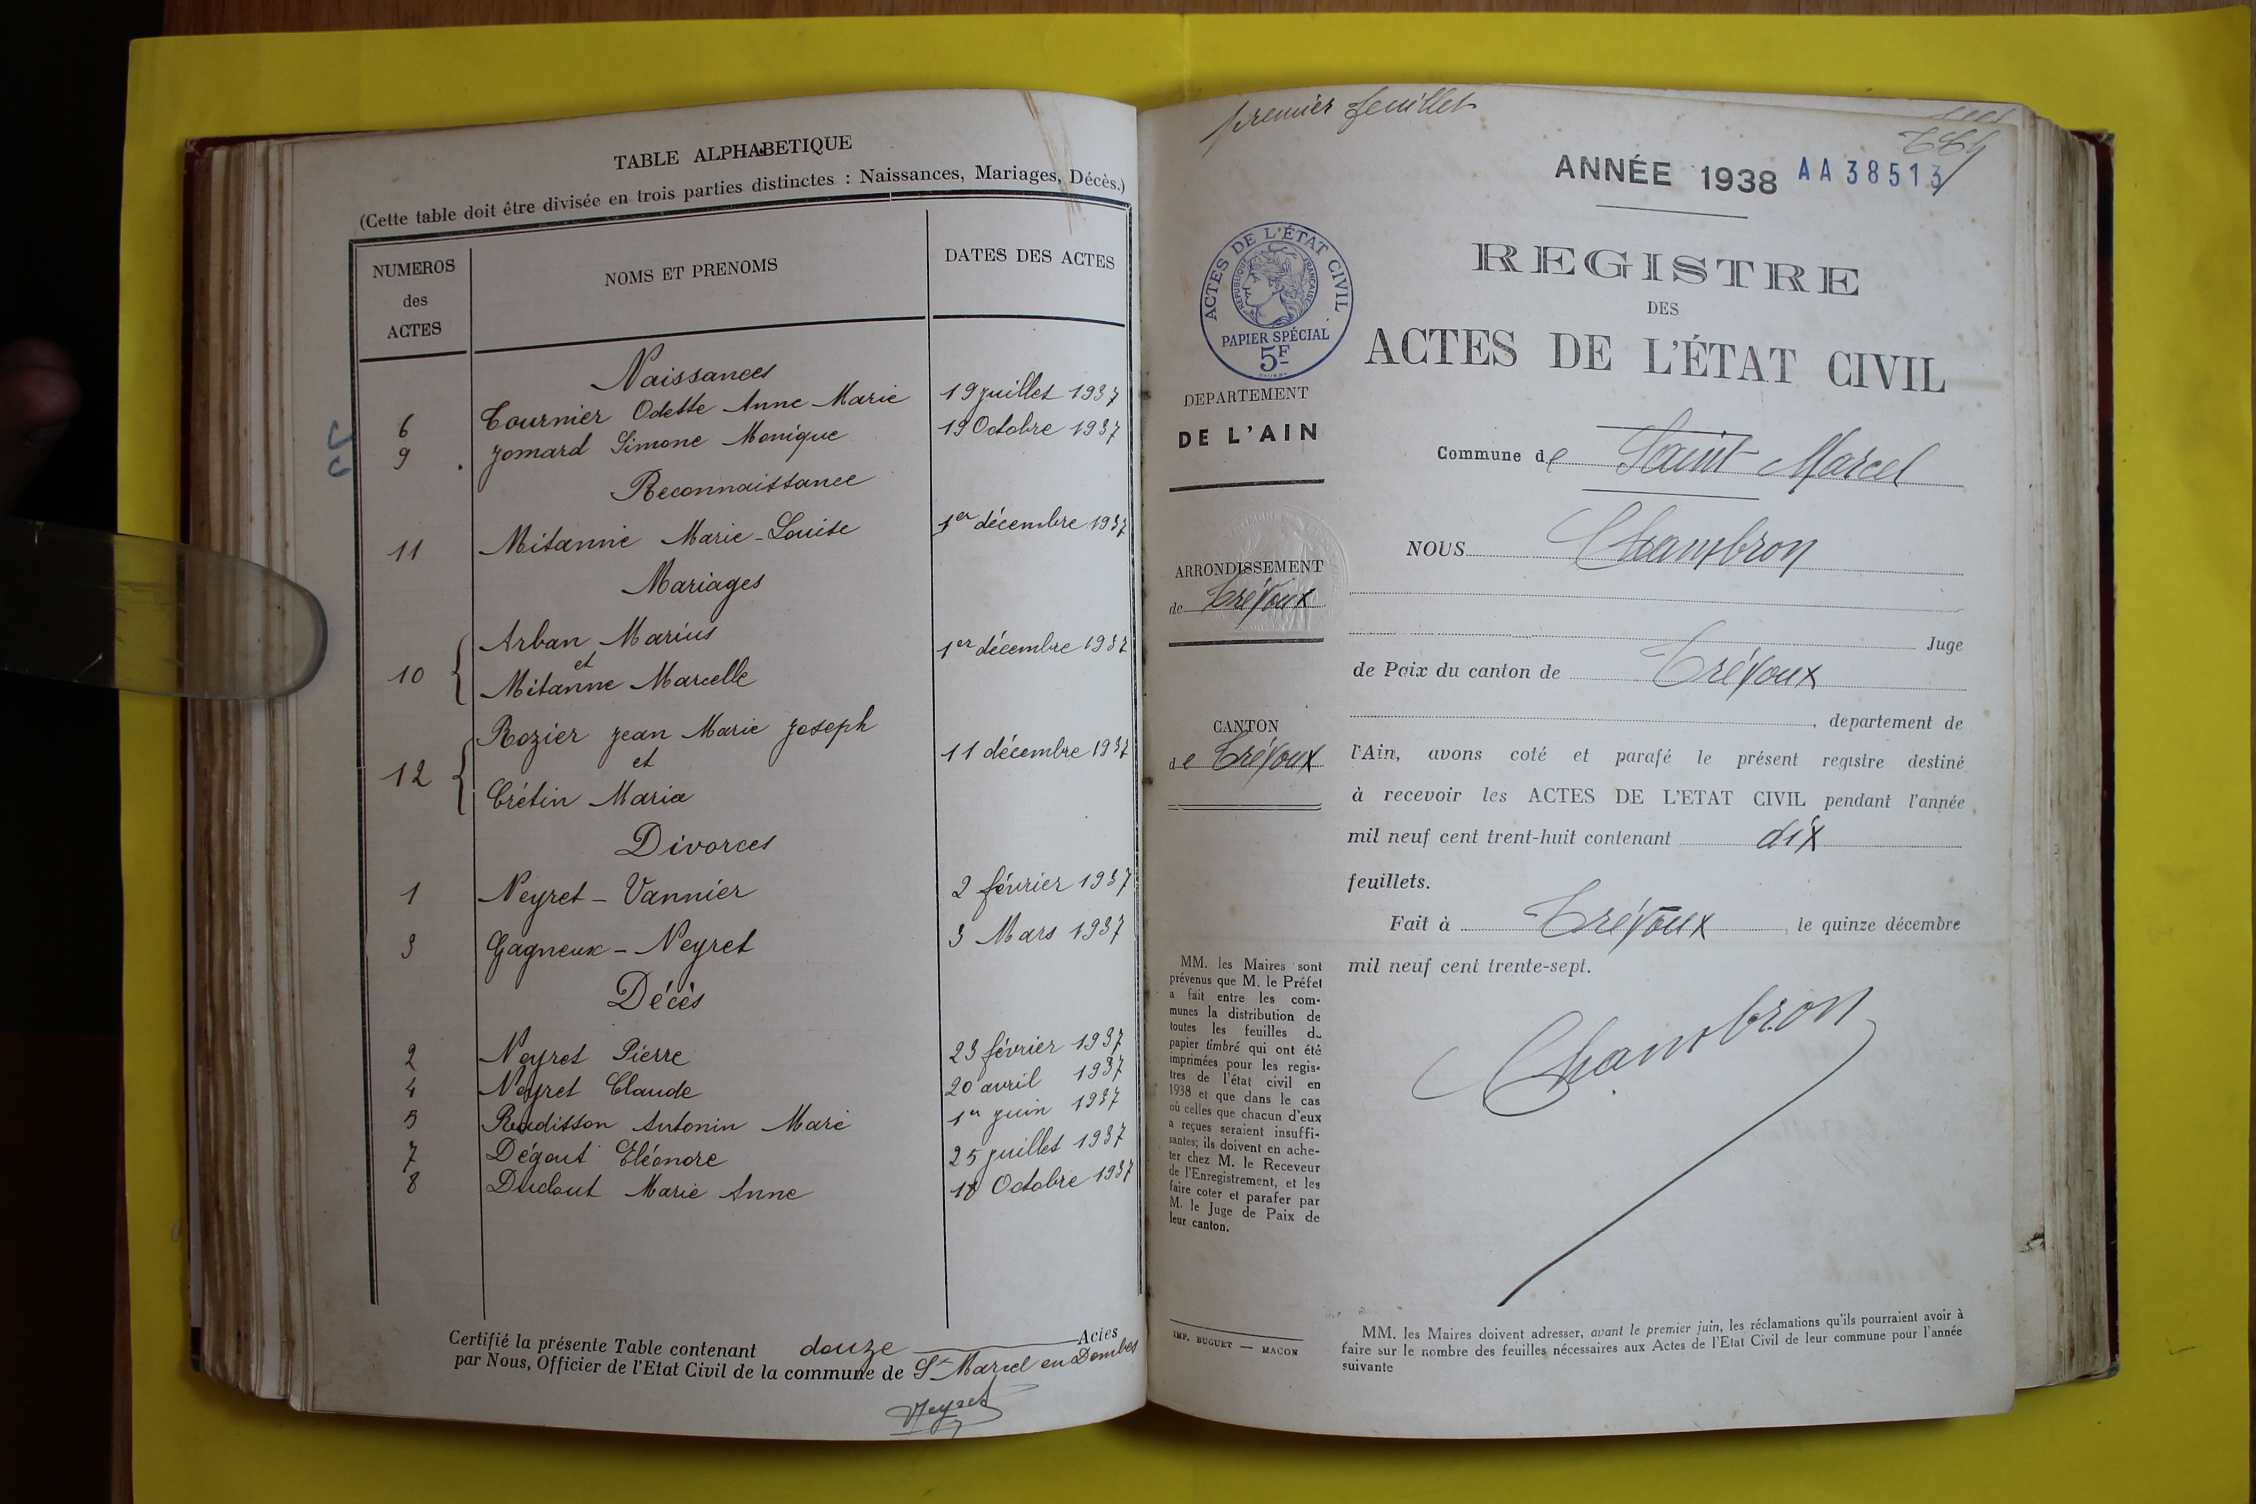 TABLE ALPHABETIQUE
(Cette table doit être divisée en trois parties distinctes : Naissances, Mariages, Décès.)
NUMEROS des ACTES
NOMS ET PRENOMS
DATES DES ACTES
Naissances
6 Tournier Odette Anne Marie 19 juillet 1937
9 Jomard Simone Monique 19 Octobre 1937
Reconnaissance
11 Mitanne Marie-Louise 1er décembre 1937
Mariages
10 { Arban Marius
et
Mitanne Marcelle 1er décembre 1937
12 { Rozier Jean Marie Joseph
et
Crétin Maria 11 décembre 1937
Divorces
1 Neyret - Vannier 2 février 1937
3 Gagneux - Neyret 3 Mars 1937
Décès
2 Neyret Pierre 23 février 1937
4 Neyret Claude 20 avril 1937
5 Rudisson Antonin Marie 1er juin 1937
7 Dégout Eléonore 25 juillet 1937
8 Duclout Marie Anne 18 Octobre 1937
Certifié la présente Table contenant douze Actes
par Nous, Officier de l'Etat Civil de la commune de St Marcel en Dombes
Neyret
premier feuillet
ANNÉE 1938 AA 38513
ACTES DE L'ÉTAT CIVIL
RÉPUBLIQUE FRANÇAISE
PAPIER SPÉCIAL
5F
REGISTRE
DES
ACTES DE L'ÉTAT CIVIL
DEPARTEMENT
DE L'AIN
Commune de Saint-Marcel
ARRONDISSEMENT
de Trévoux
CANTON
de Trévoux
NOUS Chambron
Juge
de Paix du canton de Trévoux
, departement de
l'Ain, avons coté et parafé le présent registre destiné
à recevoir les ACTES DE L'ETAT CIVIL pendant l'année
mil neuf cent trent-huit contenant dix
feuillets.
Fait à Trévoux, le quinze décembre
mil neuf cent trente-sept.
Chambron
MM. les Maires sont
prévenus que M. le Préfet
a fait entre les com-
munes la distribution de
toutes les feuilles du
papier timbré qui ont été
imprimées pour les regis-
tres de l'état civil en
1938 et que dans le cas
où celles que chacun d'eux
a reçues seraient insuffi-
santes; ils doivent en ache-
ter chez M. le Receveur
de l'Enregistrement, et les
faire coter et parafer par
M. le Juge de Paix de
leur canton.
IMP. BUGUET — MACON
MM. les Maires doivent adresser, avant le premier juin, les réclamations qu'ils pourraient avoir à
faire sur le nombre des feuilles nécessaires aux Actes de l'Etat Civil de leur commune pour l'année
suivante